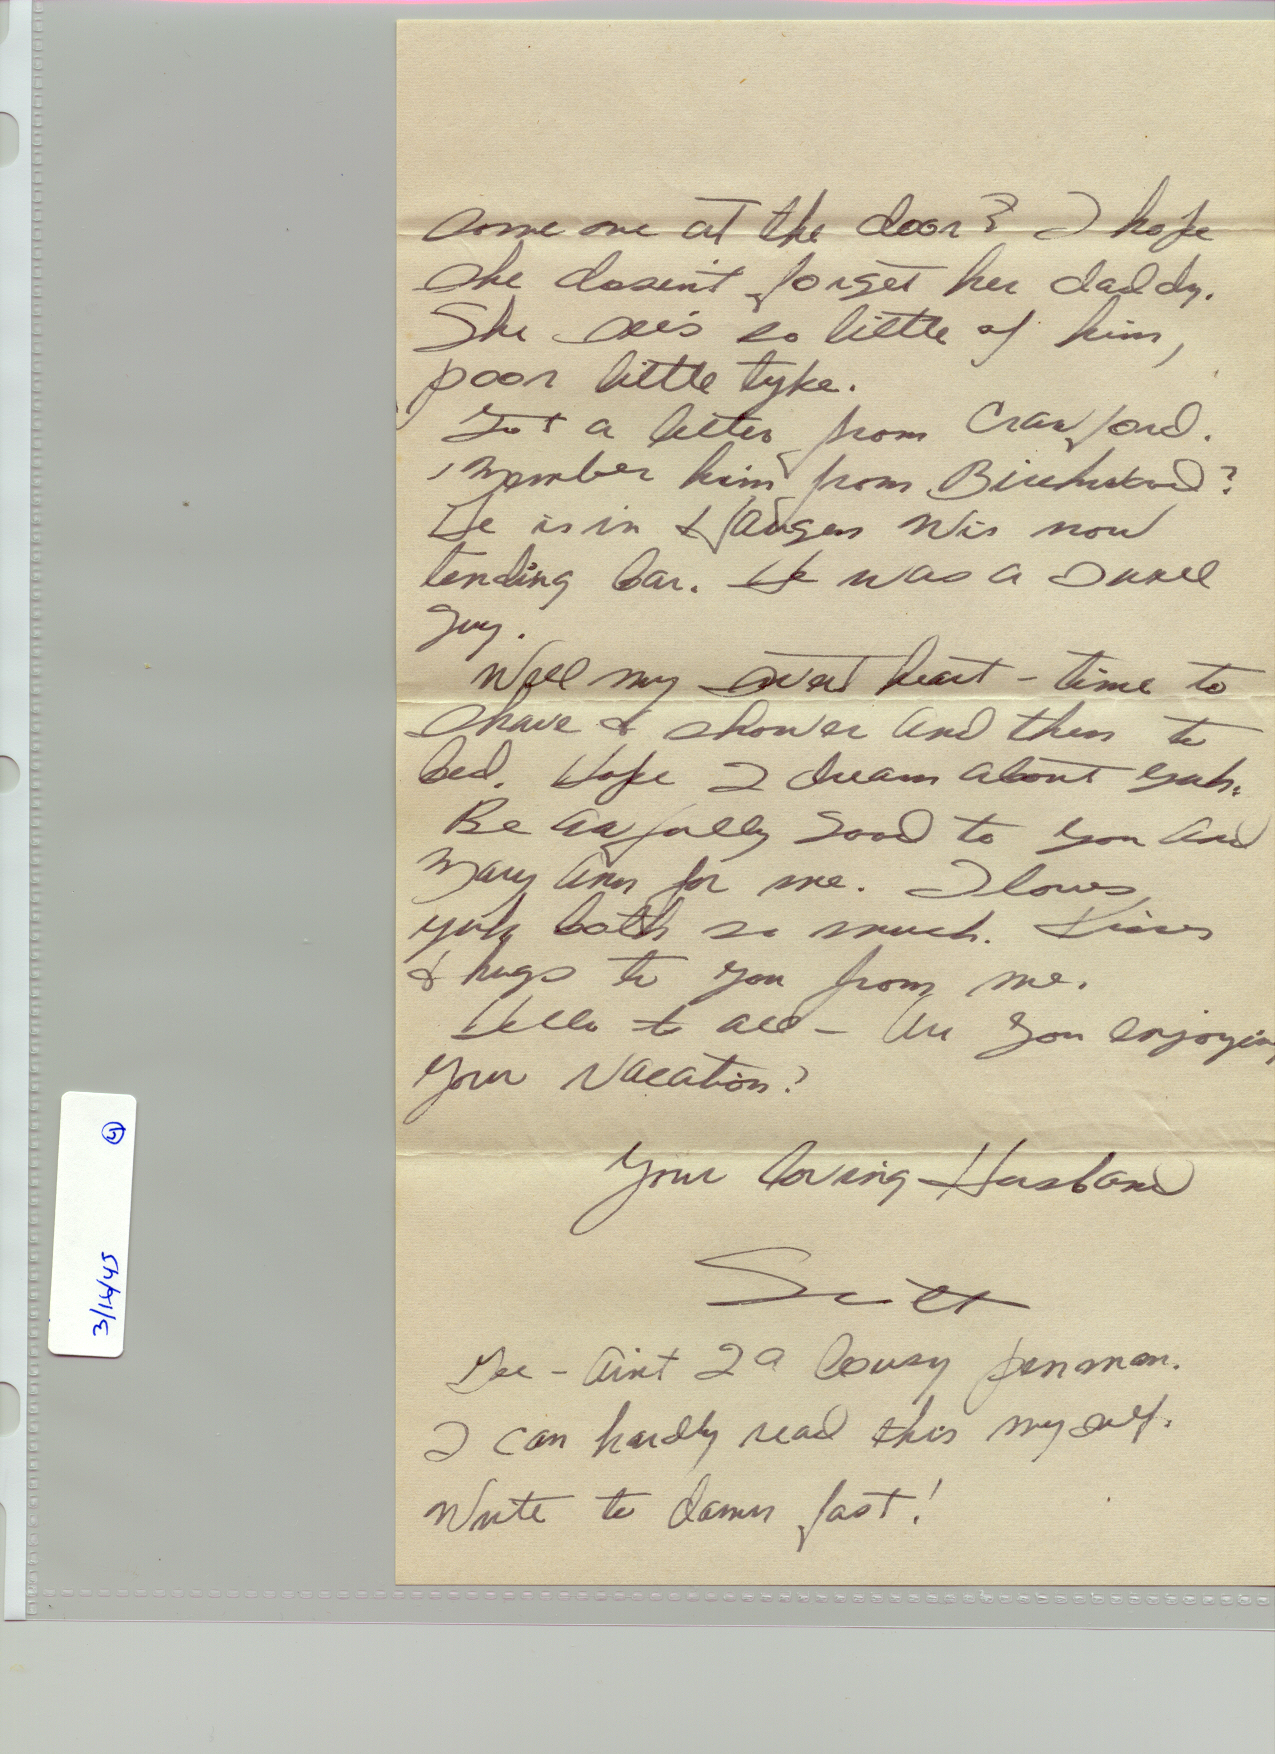 some one at the door? I hope
she dosen't forget her daddy.
She see's so little of him,
poor little tyke.
Got a letter from Crawford.
'member him from Birchwood?
He is in Haugen Wis now
tending bar. He was a swell
guy.
Well my sweet heart - time to
shave & shower and then to
bed. Hope I dream about yuh.
Be awfully good to you and
Mary Ann for me. I loves
yuh both so much. Kisses
& hugs to you from me.
Hello to all - Are you enjoying
your vacation?
Your loving Husband
Scott
Gee - aint I a lousy penman.
I can hardly read this myself.
Write to damn fast!
3/14/45 4